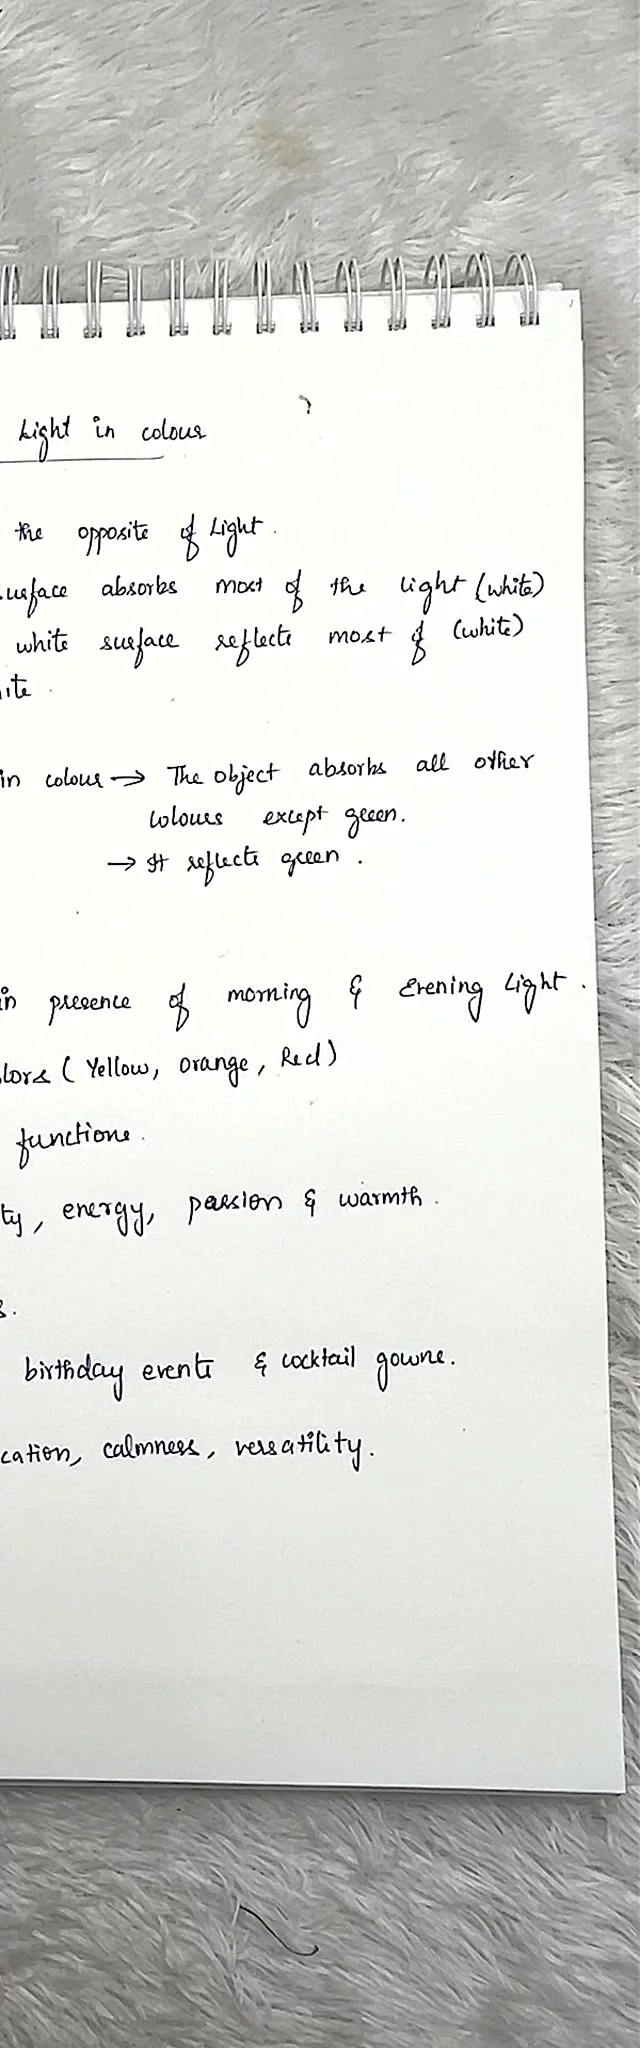 Light in colour
the opposite of Light.
surface absorbs most of the light (white)
white surface reflects most of (white)
ite.
in colour → The object absorbs all other
colours except green.
→ It reflects green.
in presence of morning & Evening Light.
lors (Yellow, orange, Red)
functions.
ty, energy, passion & warmth.
s.
birthday events & cocktail gowns.
cation, calmness, versatility.